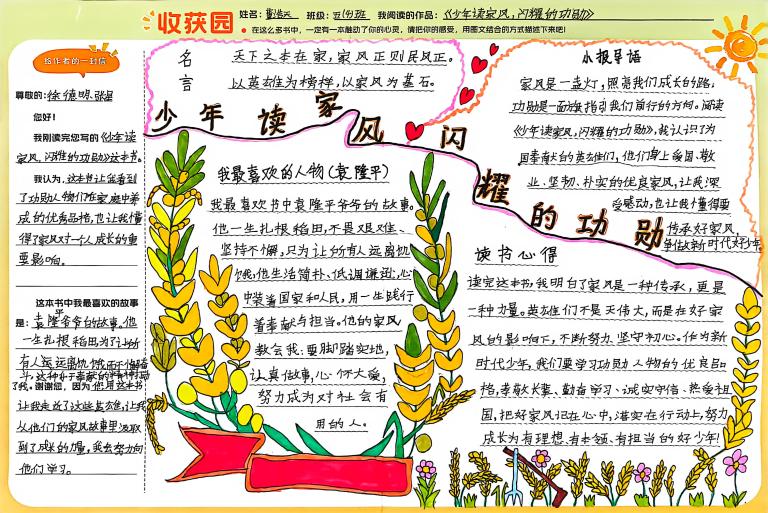 收获园
姓名：
班级：五(4)班
我阅读的作品：《少年读家风，闪耀的功勋》
在这么多书中，一定有一本触动了你的心灵，请把你的感受，用图文结合的方式描述下来吧！
给作者的一封信
尊敬的：徐德明
您好！
我刚读完您写的《少年读
家风，闪耀的功勋》这本书。
我认为，这本书让我看到
了功勋人物们在家庭中养
成的优秀品格，也让我懂
得了家风对一个人成长的重
要影响。
这本书中我最喜欢的故事
是：袁隆平爷爷的故事。他
一生扎根稻田为了让所
有人远离饥饿而不懈奋
了我。谢谢您，因为他是这本书
让我走近了这些英雄，让我
从他们的家风故事里汲取
到了成长的力量，我会努力向
他们学习。
名言
天下之本在家，家风正则民风正。
以英雄为榜样，以家风为基石。
少年读家风 闪耀的功勋
我最喜欢的人物（袁隆平）
我最喜欢书中袁隆平爷爷的故事。
他一生扎根稻田，不畏艰难、
坚持不懈，只为让所有人远离饥
饿，他生活简朴、低调谦逊，心
中装着国家和人民，用一生践行
着奉献与担当。他的家风
教会我：要脚踏实地，
认真做事，心怀大爱，
努力成为对社会有
用的人。
小报导语
家风是一盏灯，照亮我们成长的路；
功勋是一面旗指引我们前行的方向。阅读
《少年读家风，闪耀的功勋》，我认识了为
国奉献的英雄们，他们身上爱国、敬
业、坚韧、朴实的优良家风，让我深
受感动，也让我懂得要
传承好家风，
争做新时代好少年。
读书心得
读完这本书，我明白了家风是一种传承，更是
一种力量。英雄们不是天生伟大，而是在好家
风的影响下，不断努力、坚守初心。作为新
时代少年，我们要学习功勋人物的优良品
格，孝敬长辈、勤奋学习、诚实守信、热爱祖
国，把好家风记在心中，落实在行动上，努力
成长为有理想、有本领、有担当的好少年！